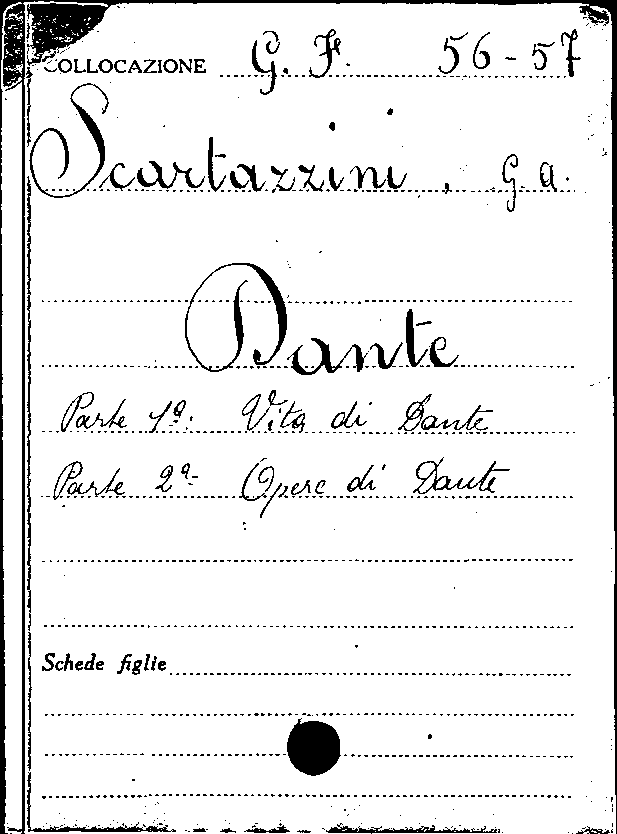 COLLOCAZIONE G. F. 56-57
Scartazzini, G. A.
Dante
Parte 1ª: Vita di Dante
Parte 2ª- Opere di Dante
Schede figlie